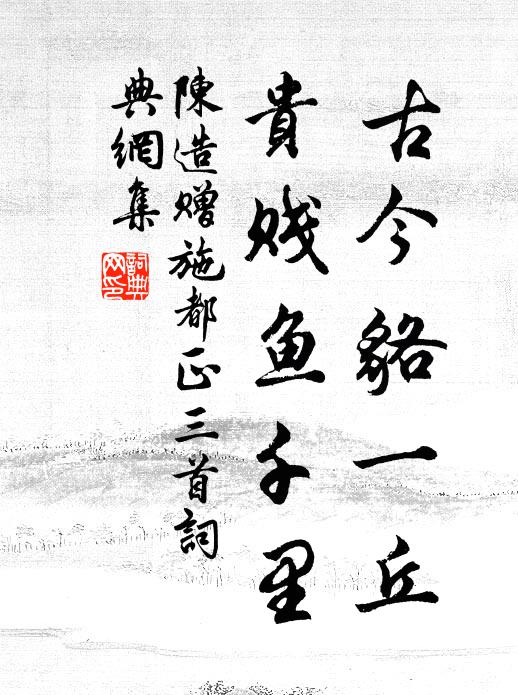 古今貉一丘
貴賤魚千里
陳造贈施都正三首詞
典網集
詞典
网印